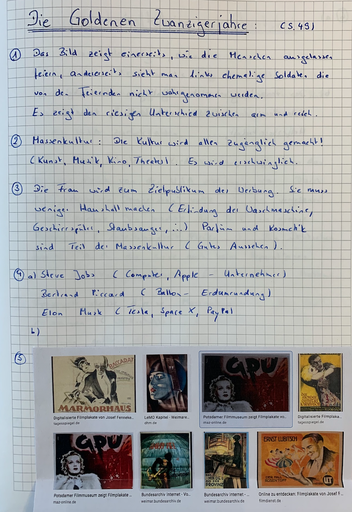 Die Goldenen Zwanzigerjahre: (S. 49)
① Das Bild zeigt einerseits, wie die Menschen ausgelassen
feiern, andererseits sieht man links ehemalige Soldaten die
von den Feiernden nicht wahrgenommen werden.
Es zeigt den riesigen Unterschied zwischen arm und reich.
② Massenkultur: Die Kultur wird allen zugänglich gemacht!
(Kunst, Musik, Kino, Theater). Es wird erschwinglich.
③ Die Frau wird zum Zielpublikum der Werbung. Sie muss
weniger Haushalt machen (Erfindung der Waschmaschine,
Geschirrspüler, Staubsauger, ...) Parfüm und Kosmetik
sind Teil der Massenkultur (Gutes Aussehen).
④ a) Steve Jobs (Computer, Apple - Unternehmer)
Bertrand Piccard (Ballon - Erdumrundung)
Elon Musk (Tesla, Space X, PayPal
b)
⑤
MARMORHAUS
GPU
Digitalisierte Filmplakate von Josef Fenneker...
tagesspiegel.de
LeMO Kapitel - Weimar...
dhm.de
Potsdamer Filmmuseum zeigt Filmplakate vo...
maz-online.de
Digitalisierte Filmplaka...
tagesspiegel.de
GPU
ERNST LUBITSCH
UT
Potsdamer Filmmuseum zeigt Filmplakate ...
maz-online.de
Bundesarchiv Internet - Vo...
weimar.bundesarchiv.de
Bundesarchiv Internet - ...
weimar.bundesarchiv.de
Online zu entdecken: Filmplakate von Josef F...
filmdienst.de